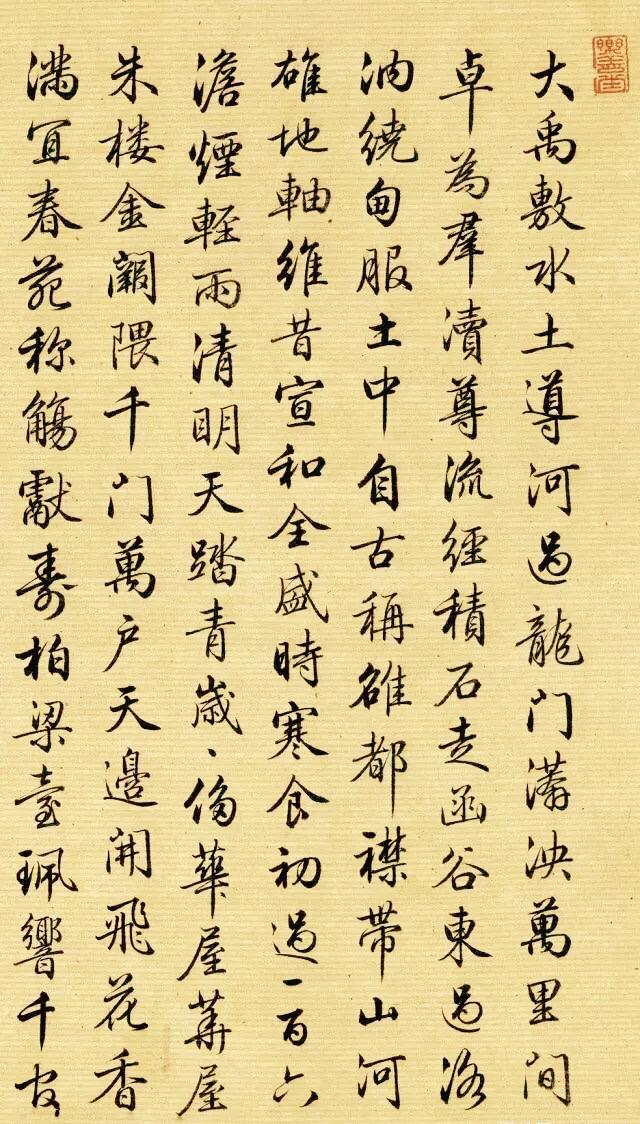 大禹敷水土導河過龍门漭泱萬里间
卓為羣瀆尊流經積石走函谷東過洛
汭繞甸服土中自古稱雒都襟帶山河
雄地軸維昔宣和全盛時寒食初過一百六
澹煙輕雨清明天踏青歲、侈華屋華屋
朱楼金闕隈千门萬户天邊開飛花香
滿宜春苑称觴獻壽柏梁臺珮響千官